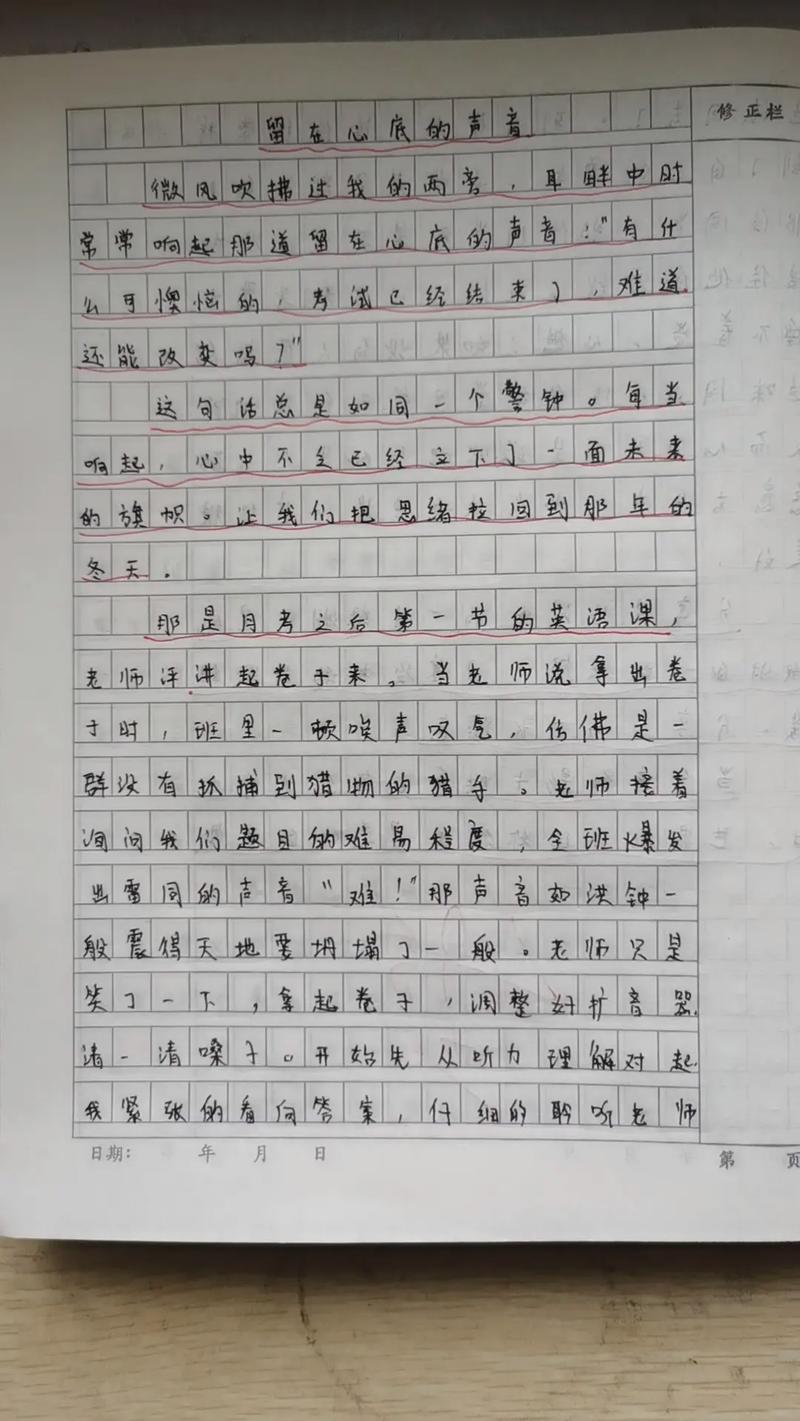 留在心底的声音
修正栏
微风吹拂过我的两旁，耳畔中时
常常响起那道留在心底的声音！"有什
么可懊恼的，考试已经结束了，难道
还能改变吗？"
这句话总是如同一个警钟。每当
响起，心中不乏已经立下了一面未来
的旗帜。让我们把思绪拉回到那年的
冬天。
那是月考之后第一节的英语课，
老师评讲起卷子来。当老师说拿出卷
子时，班里一顿唉声叹气，仿佛是一
群没有抓捕到猎物的猎手。老师接着
询问我们题目的难易程度，全班爆发
出雷同的声音"难！"那声音如洪钟一
般震得天地要坍塌了一般。老师只是
笑了一下，拿起卷子，调整好扩音器
清一清嗓子。开始先从听力理解对起
我紧张的看向答案，仔细的聆听老师
日期： 年 月 日
第 页